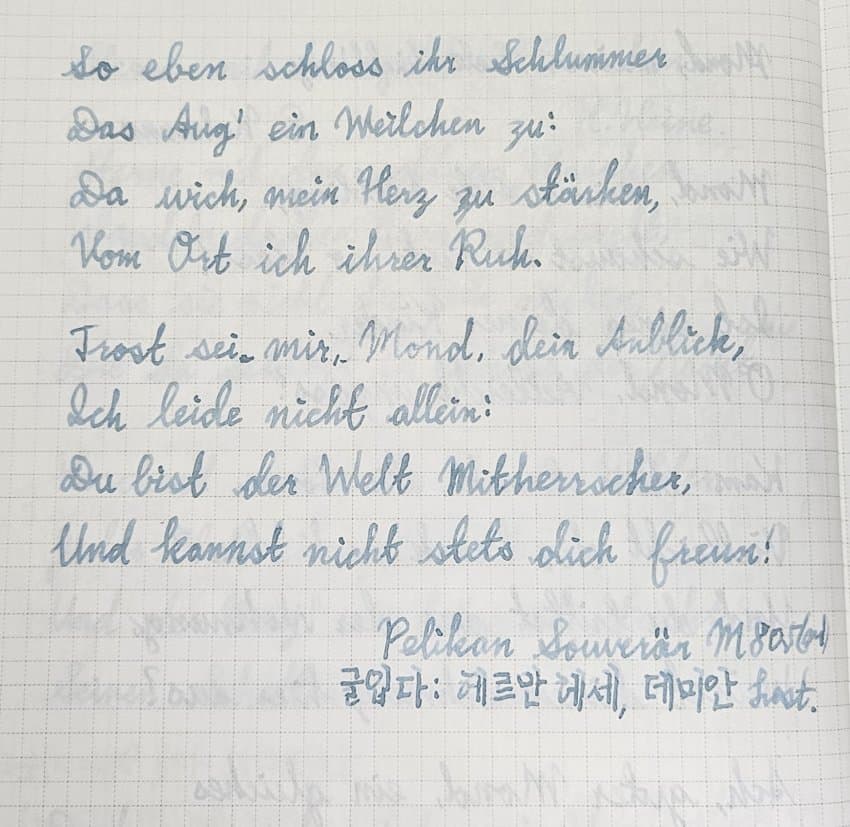 So eben schloss ihr Schlummer
Das Aug' ein Weilchen zu:
Da wich, mein Herz zu stärken,
Vom Ort ich ihrer Ruh.
Trost sei mir, Mond, dein Anblick,
Ich leide nicht allein:
Du bist der Welt Mitherrscher,
Und kannst nicht stets dich freun!
Pelikan Souverän M805
글입다: 헤르만 헤세, 데미안